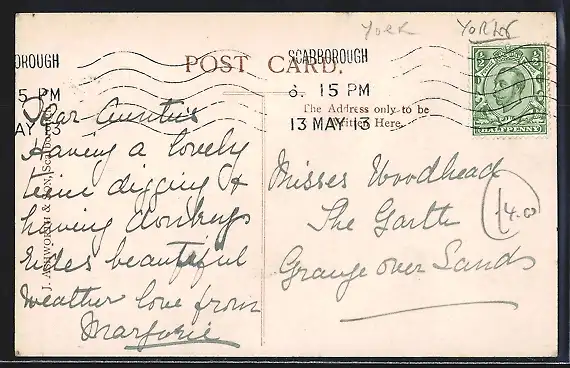 York York
OROUGH SCARBOROUGH
POST CARD.
5 PM 8. 15 PM
AY 13 13 MAY 13
The Address only to be
Written Here.
HALFPENNY
J. ASHWORTH & SON, Scarborough
Dear Aunties
Having a lovely
time digging &
having donkeys
rides beautiful
weather love from
Marjorie
Misses Woodhead
The Garth
Grange over Sands